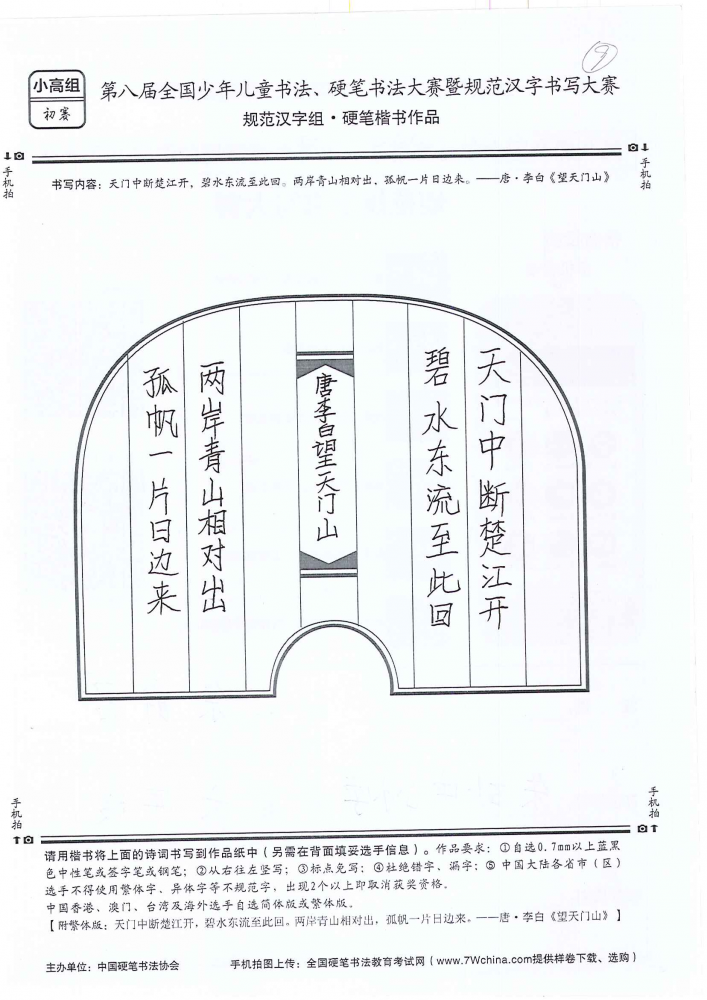 ⑨
小高组
初赛
第八届全国少年儿童书法、硬笔书法大赛暨规范汉字书写大赛
规范汉字组·硬笔楷书作品
手机拍
手机拍
书写内容：天门中断楚江开，碧水东流至此回。两岸青山相对出，孤帆一片日边来。——唐·李白《望天门山》
天门中断楚江开
碧水东流至此回
唐李白望天门山
两岸青山相对出
孤帆一片日边来
手机拍
手机拍
请用楷书将上面的诗词书写到作品纸中（另需在背面填妥选手信息）。作品要求：①自选0.7mm以上蓝黑
色中性笔或签字笔或钢笔；②从右往左竖写；③标点免写；④杜绝错字、漏字；⑤中国大陆各省市（区）
选手不得使用繁体字、异体字等不规范字，出现2个以上即取消获奖资格。
中国香港、澳门、台湾及海外选手自选简体版或繁体版。
【附繁体版：天門中斷楚江開，碧水東流至此回。兩岸青山相對出，孤帆一片日邊來。——唐·李白《望天門山》】
主办单位：中国硬笔书法协会
手机拍图上传：全国硬笔书法教育考试网（www.7Wchina.com提供样卷下载、选购）